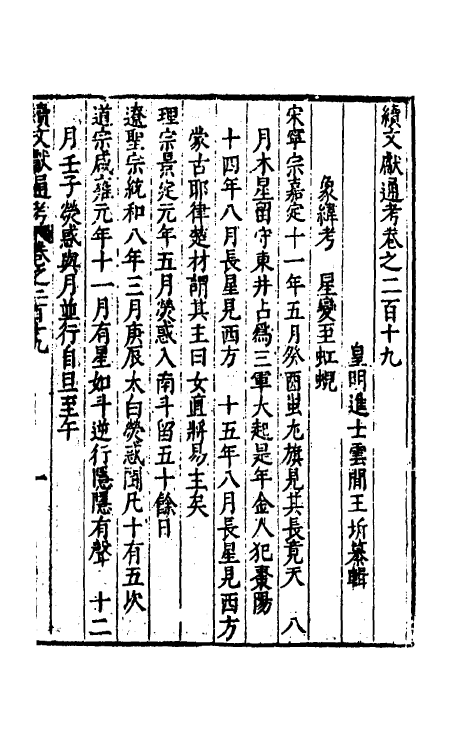 續文獻通考卷之二百十九
皇明進士雲間王圻纂輯
象緯考　星變至虹蜺
宋寧宗嘉定十一年五月癸酉蚩尤旗見其長竟天　八
月木星留守東井占爲三軍大起是年金人犯棗陽
十四年八月長星見西方　十五年八月長星見西方
蒙古耶律楚材謂其主曰女直將易主矣
理宗景定元年五月熒惑入南斗留五十餘日
遼聖宗統和八年三月庚辰太白熒惑鬪凡十有五次
道宗咸雍元年十一月有星如斗逆行隱隱有聲　十二
月壬子熒惑與月並行自旦至午
續文獻通考　卷之二百十九　一